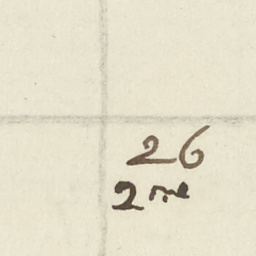 26
2 me